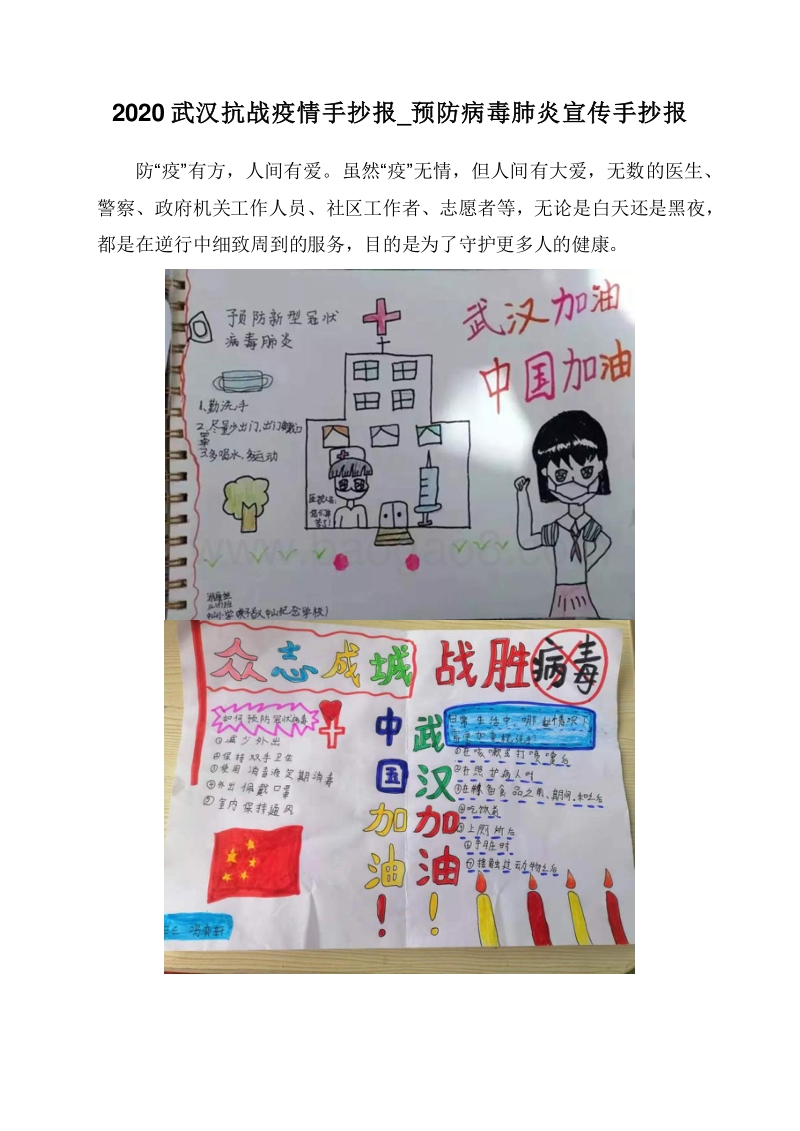 2020 武汉抗战疫情手抄报_预防病毒肺炎宣传手抄报
防“疫”有方，人间有爱。虽然“疫”无情，但人间有大爱，无数的医生、
警察、政府机关工作人员、社区工作者、志愿者等，无论是白天还是黑夜，
都是在逆行中细致周到的服务，目的是为了守护更多人的健康。
预防新型冠状
病毒肺炎
1、勤洗手
2、尽量少出门,出门戴口
罩
3、多喝水,多运动
武汉加油
中国加油
医护人员
您们辛
苦了!
www.baogao8.com
众志成城
战胜病毒
如何预防冠状病毒
①减少外出
②保持双手卫生
③使用消毒液定期消毒
④外出佩戴口罩
⑤室内保持通风
中国加油!
武汉加油!
日常生活中,哪些情况下
①在咳嗽或打喷嚏后
②在照护病人时
③在准备食品之前、期间和之后
④吃饭前
⑤上厕所后
⑥手脏时
⑦接触过动物之后